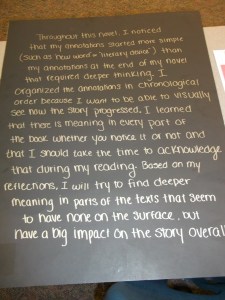 Throughout this novel, I noticed
that my annotations started more simple
(such as "new word" or "literary device") than
my annotations at the end of my novel
that required deeper thinking. I
organized the annotations in chronological
order because I want to be able to visually
see how the story progressed. I learned
that there is meaning in every part of
the book whether you notice it or not and
that I should take the time to acknowledge
that during my reading. Based on my
reflections, I will try to find deeper
meaning in parts of the texts that seem
to have none on the surface, but
have a big impact on the story overall.